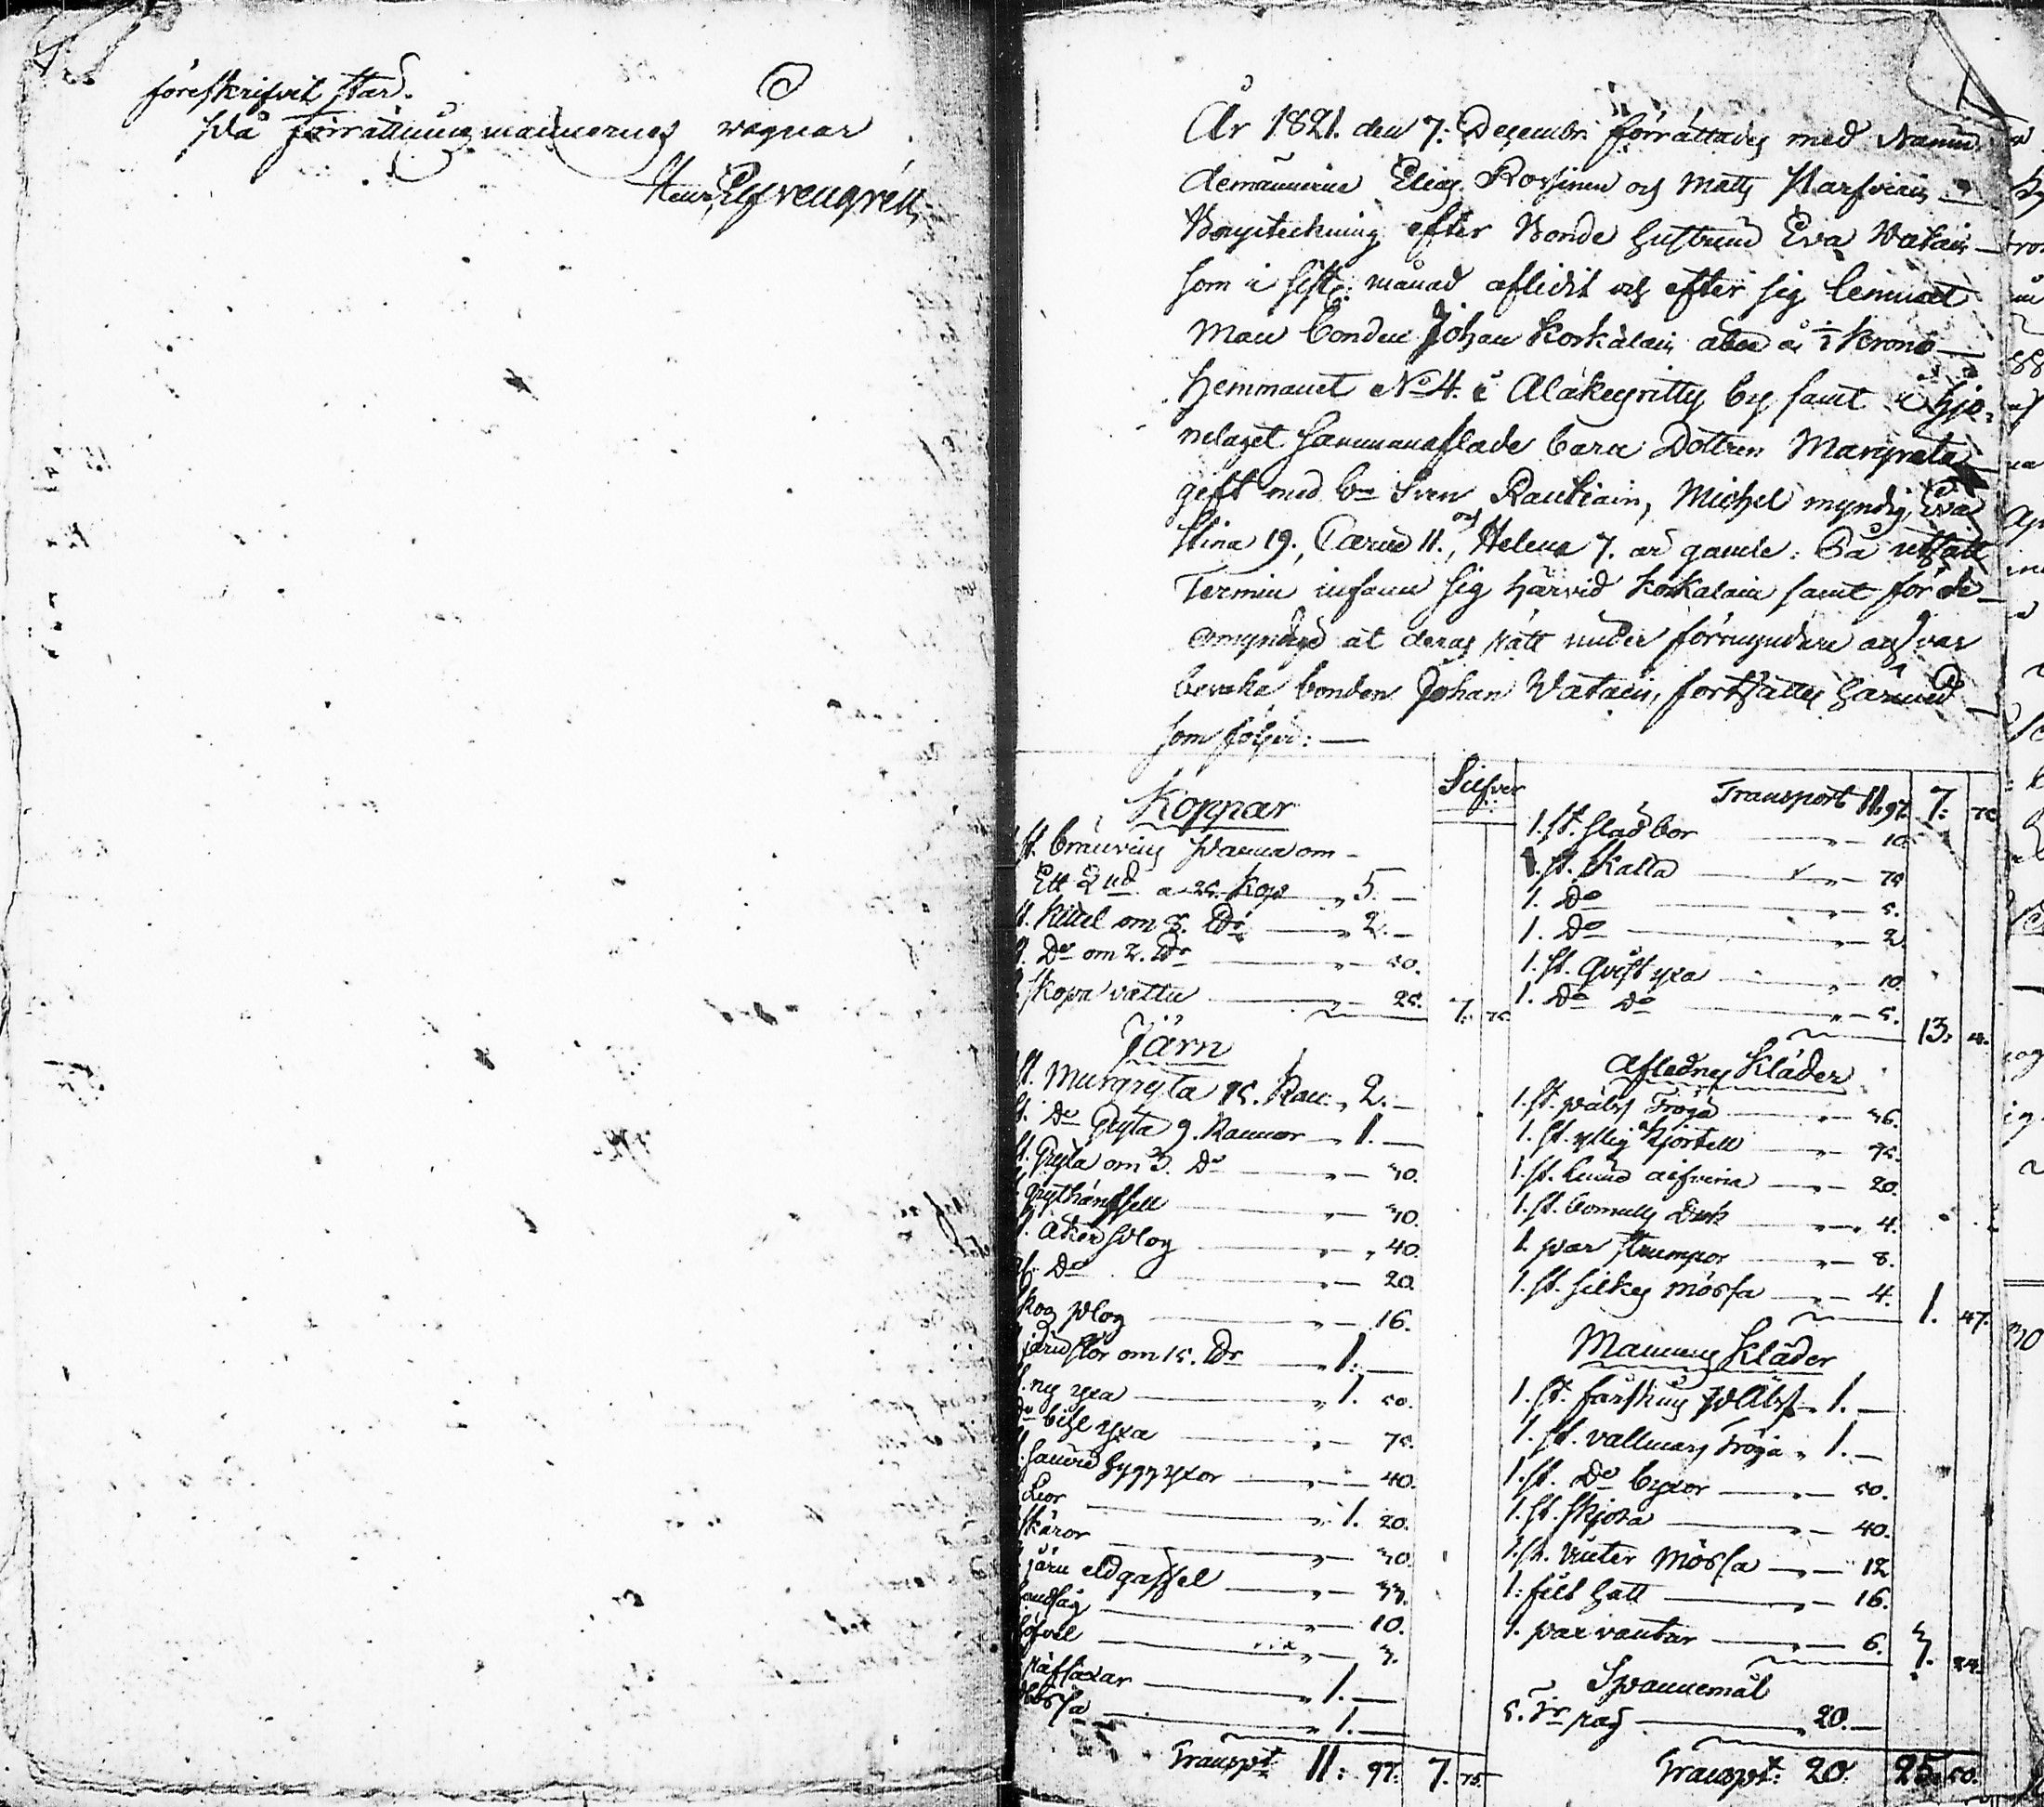 föreskrifvit stad.
På förrättningsmännernes vägnar
Henr. Elfvengren
År 1821. den 7. Decembr. förrättades med Nämn-
demännerne Elias Rossinen och Matts
Bouptekning efter Bonde hustrun Eva Watain
som i sistl. månad aflidit och efter sig lemnat
Man bonden Johan Korkalain å Krono
Hemmanet No 4. i by samt i hjo-
nelaget sammanaflade barn Dottren Margreta
gift med bn Sven Rautiain, Michel myndig, Eva
Stina 19., Carin 11., och Helena 7. år gamle. På utsatt
Termin infann sig härvid Korkalain samt för de
omyndige at deras rätt under förmyndare answar
bevaka bonden Johan Watain, fortsattes härmed
som följer:
Silfver
Koppar
st. bränvins Panna om
Ett Lud a 25. Kop 5.
st. Kittel om 3. Dr 2.
st. Do om 2. Dr 50.
Skopa 25. 7. 75.
Järn
st. Murgryta 15. Kan. 2.
st. Do Gryta 9. Kannor 1.
st. Gryta om 3. Do 30.
grythängsell 30.
st. Åker plog 40.
st. Do 20.
Skog plog 16.
järnstör om 15. Dr 1.
st. ny yxa 1. 50.
Do bihl yxa 75.
sämre hygg yxor 40.
Lior 1. 20.
Skäror 30.
järn eldgaffel 33.
handsåg 10.
höfvel 3.
räfsaxar 1.
1.
Transpt 11. 97. 7. 75.
Transport 11. 97. 7. 75
1. st. Slad bor 10.
1. st. Skalla 75
1. Do 5.
1. Do 2.
1. st. Qvist yxa 10.
1. Do Do 5.
13. 4.
Aflednes Kläder
1. st. päls Tröja 36.
1. st. yllig Kjortell 75.
1. st. 20.
1. st. bomulls Duk 4.
1. par strumpor 8.
1. st. silkes mössa 4. 1. 47.
Mannens Kläder
1. st. fårskins päls 1.
1. st. vallmars Tröja 1.
1. st. Do byxor 50.
1. st. Skjorta 40.
1. st. vinter Mössa 12
1. filt hatt 16.
1. par vantar 6. 3. 24.
Spannemål
5. Tr råg 20.
Transpt: 20. 25. 50.